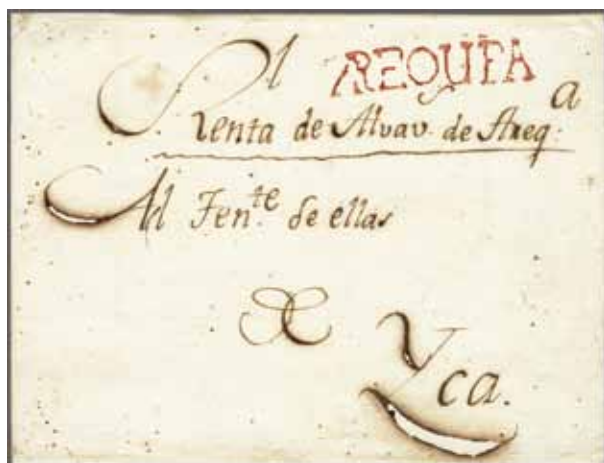 Rl AREQUIPA
Renta de Alvav. de Areq.a
Al Ten.te de ellas
Yca.